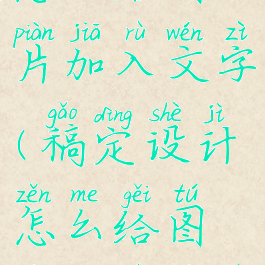 piàn jiā rù wén zì
片加入文字
gǎo dìng shè jì
(稿定设计
zěn me gěi tú
怎么给图